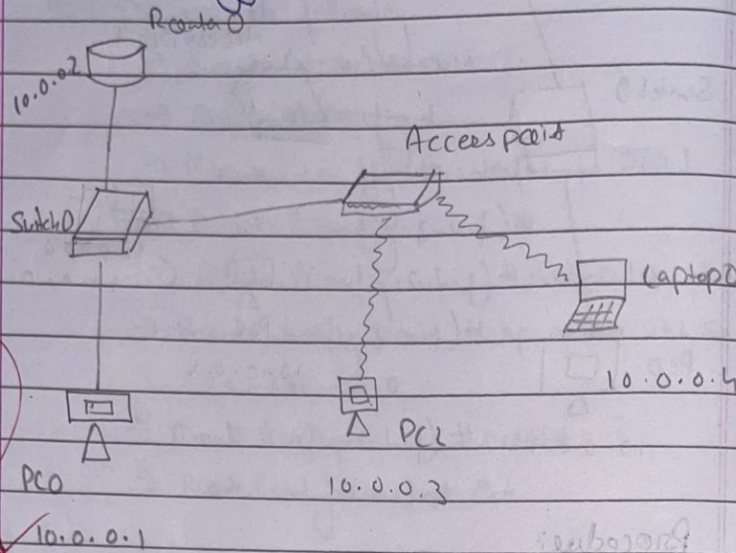 Router0
10.0.02
Accesspoint
Switch0
Laptop0
10.0.0.4
PC2
PC0
10.0.0.3
10.0.0.1